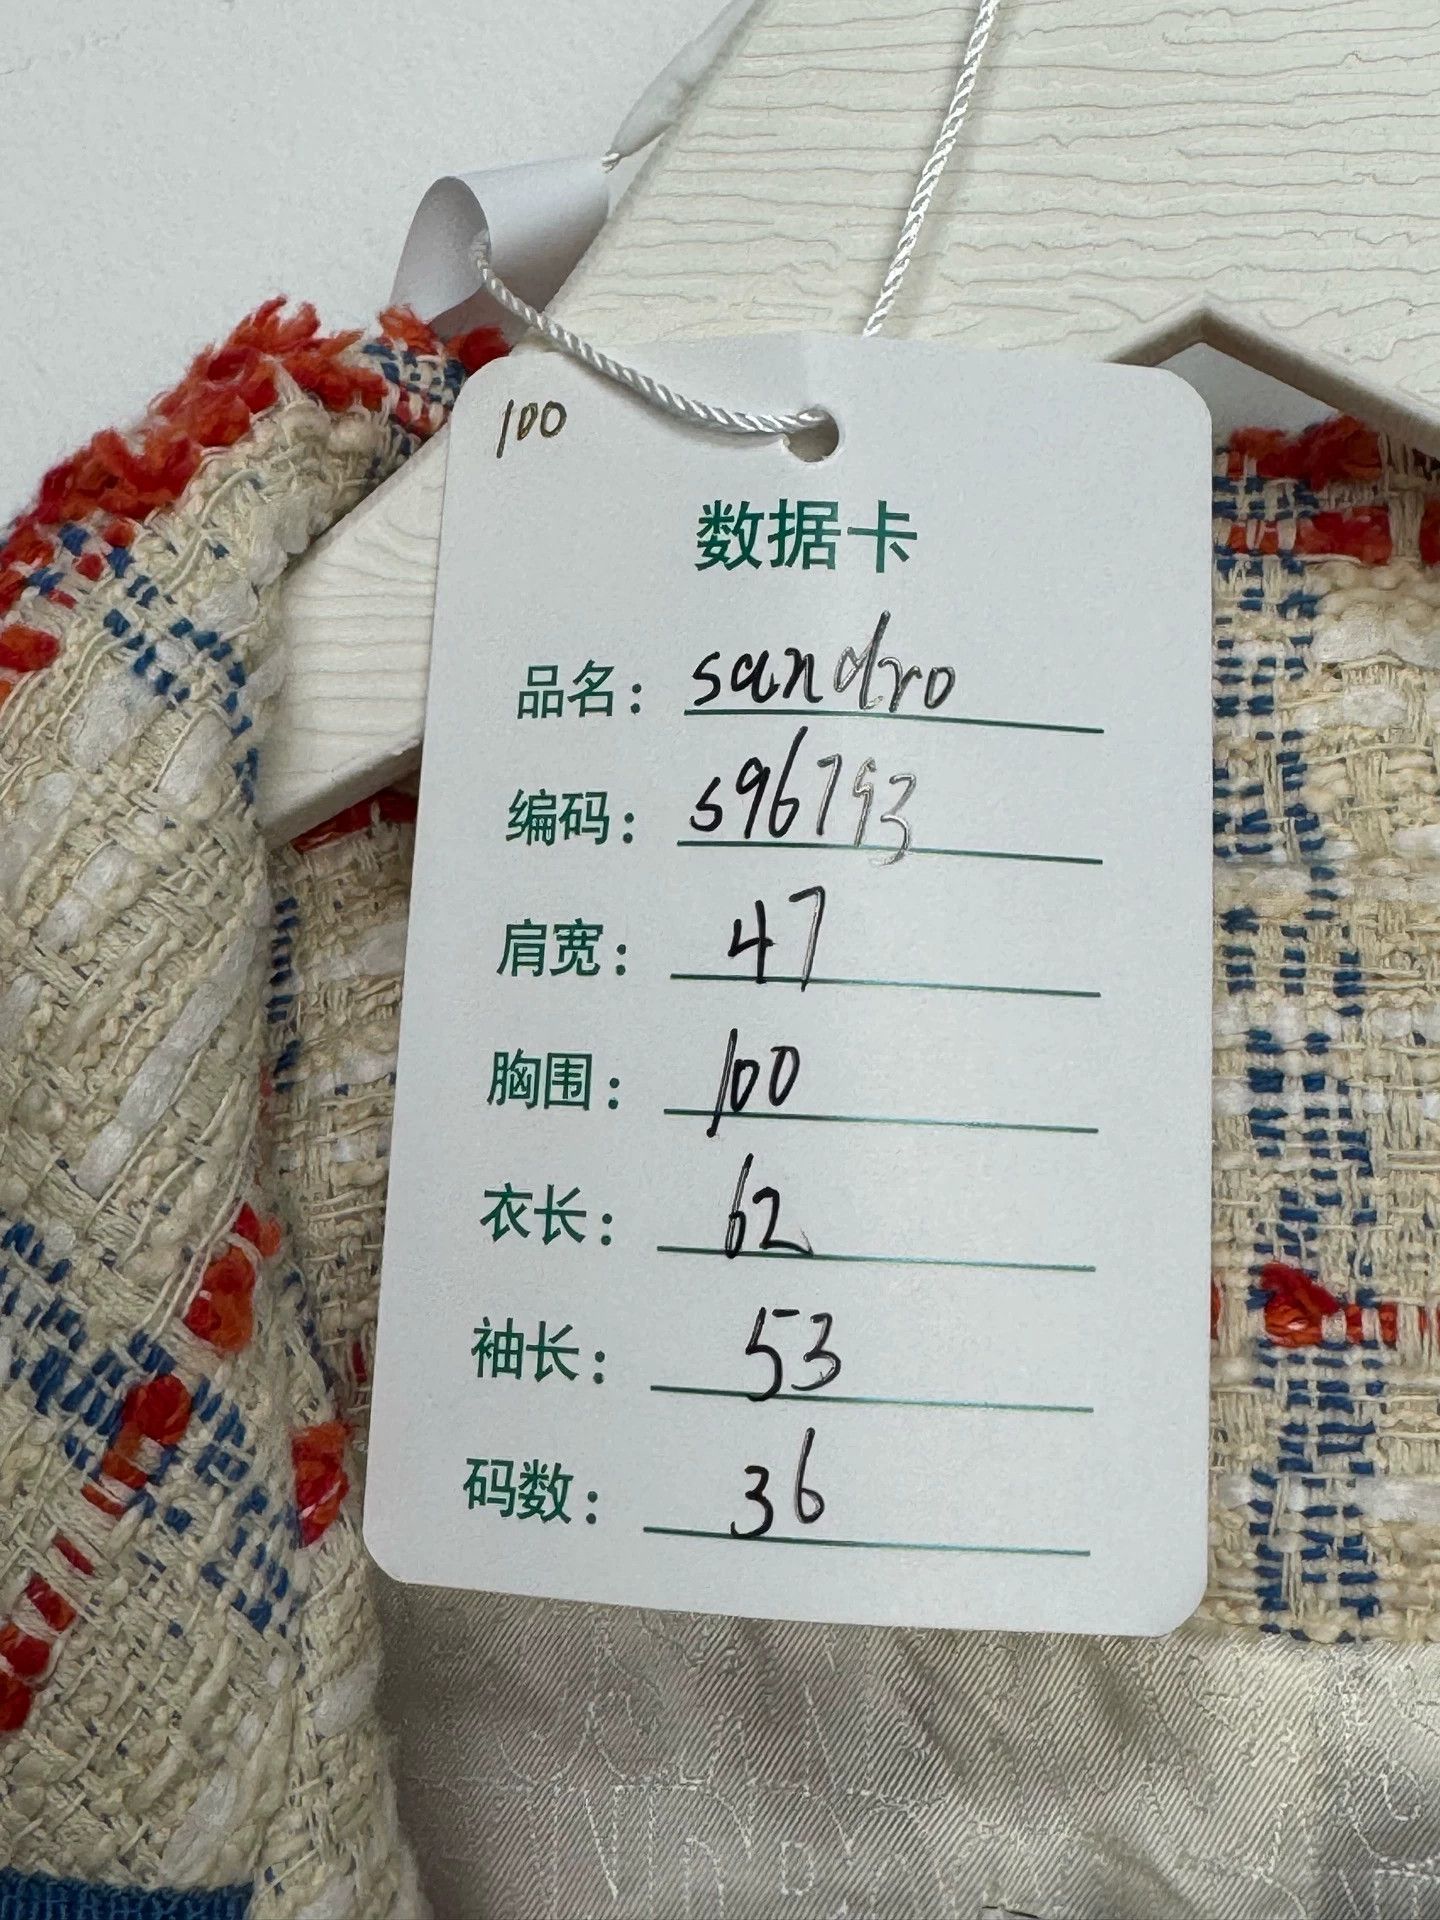 100
数据卡
品名: sandro
编码: S96793
肩宽: 47
胸围: 100
衣长: 62
袖长: 53
码数: 36